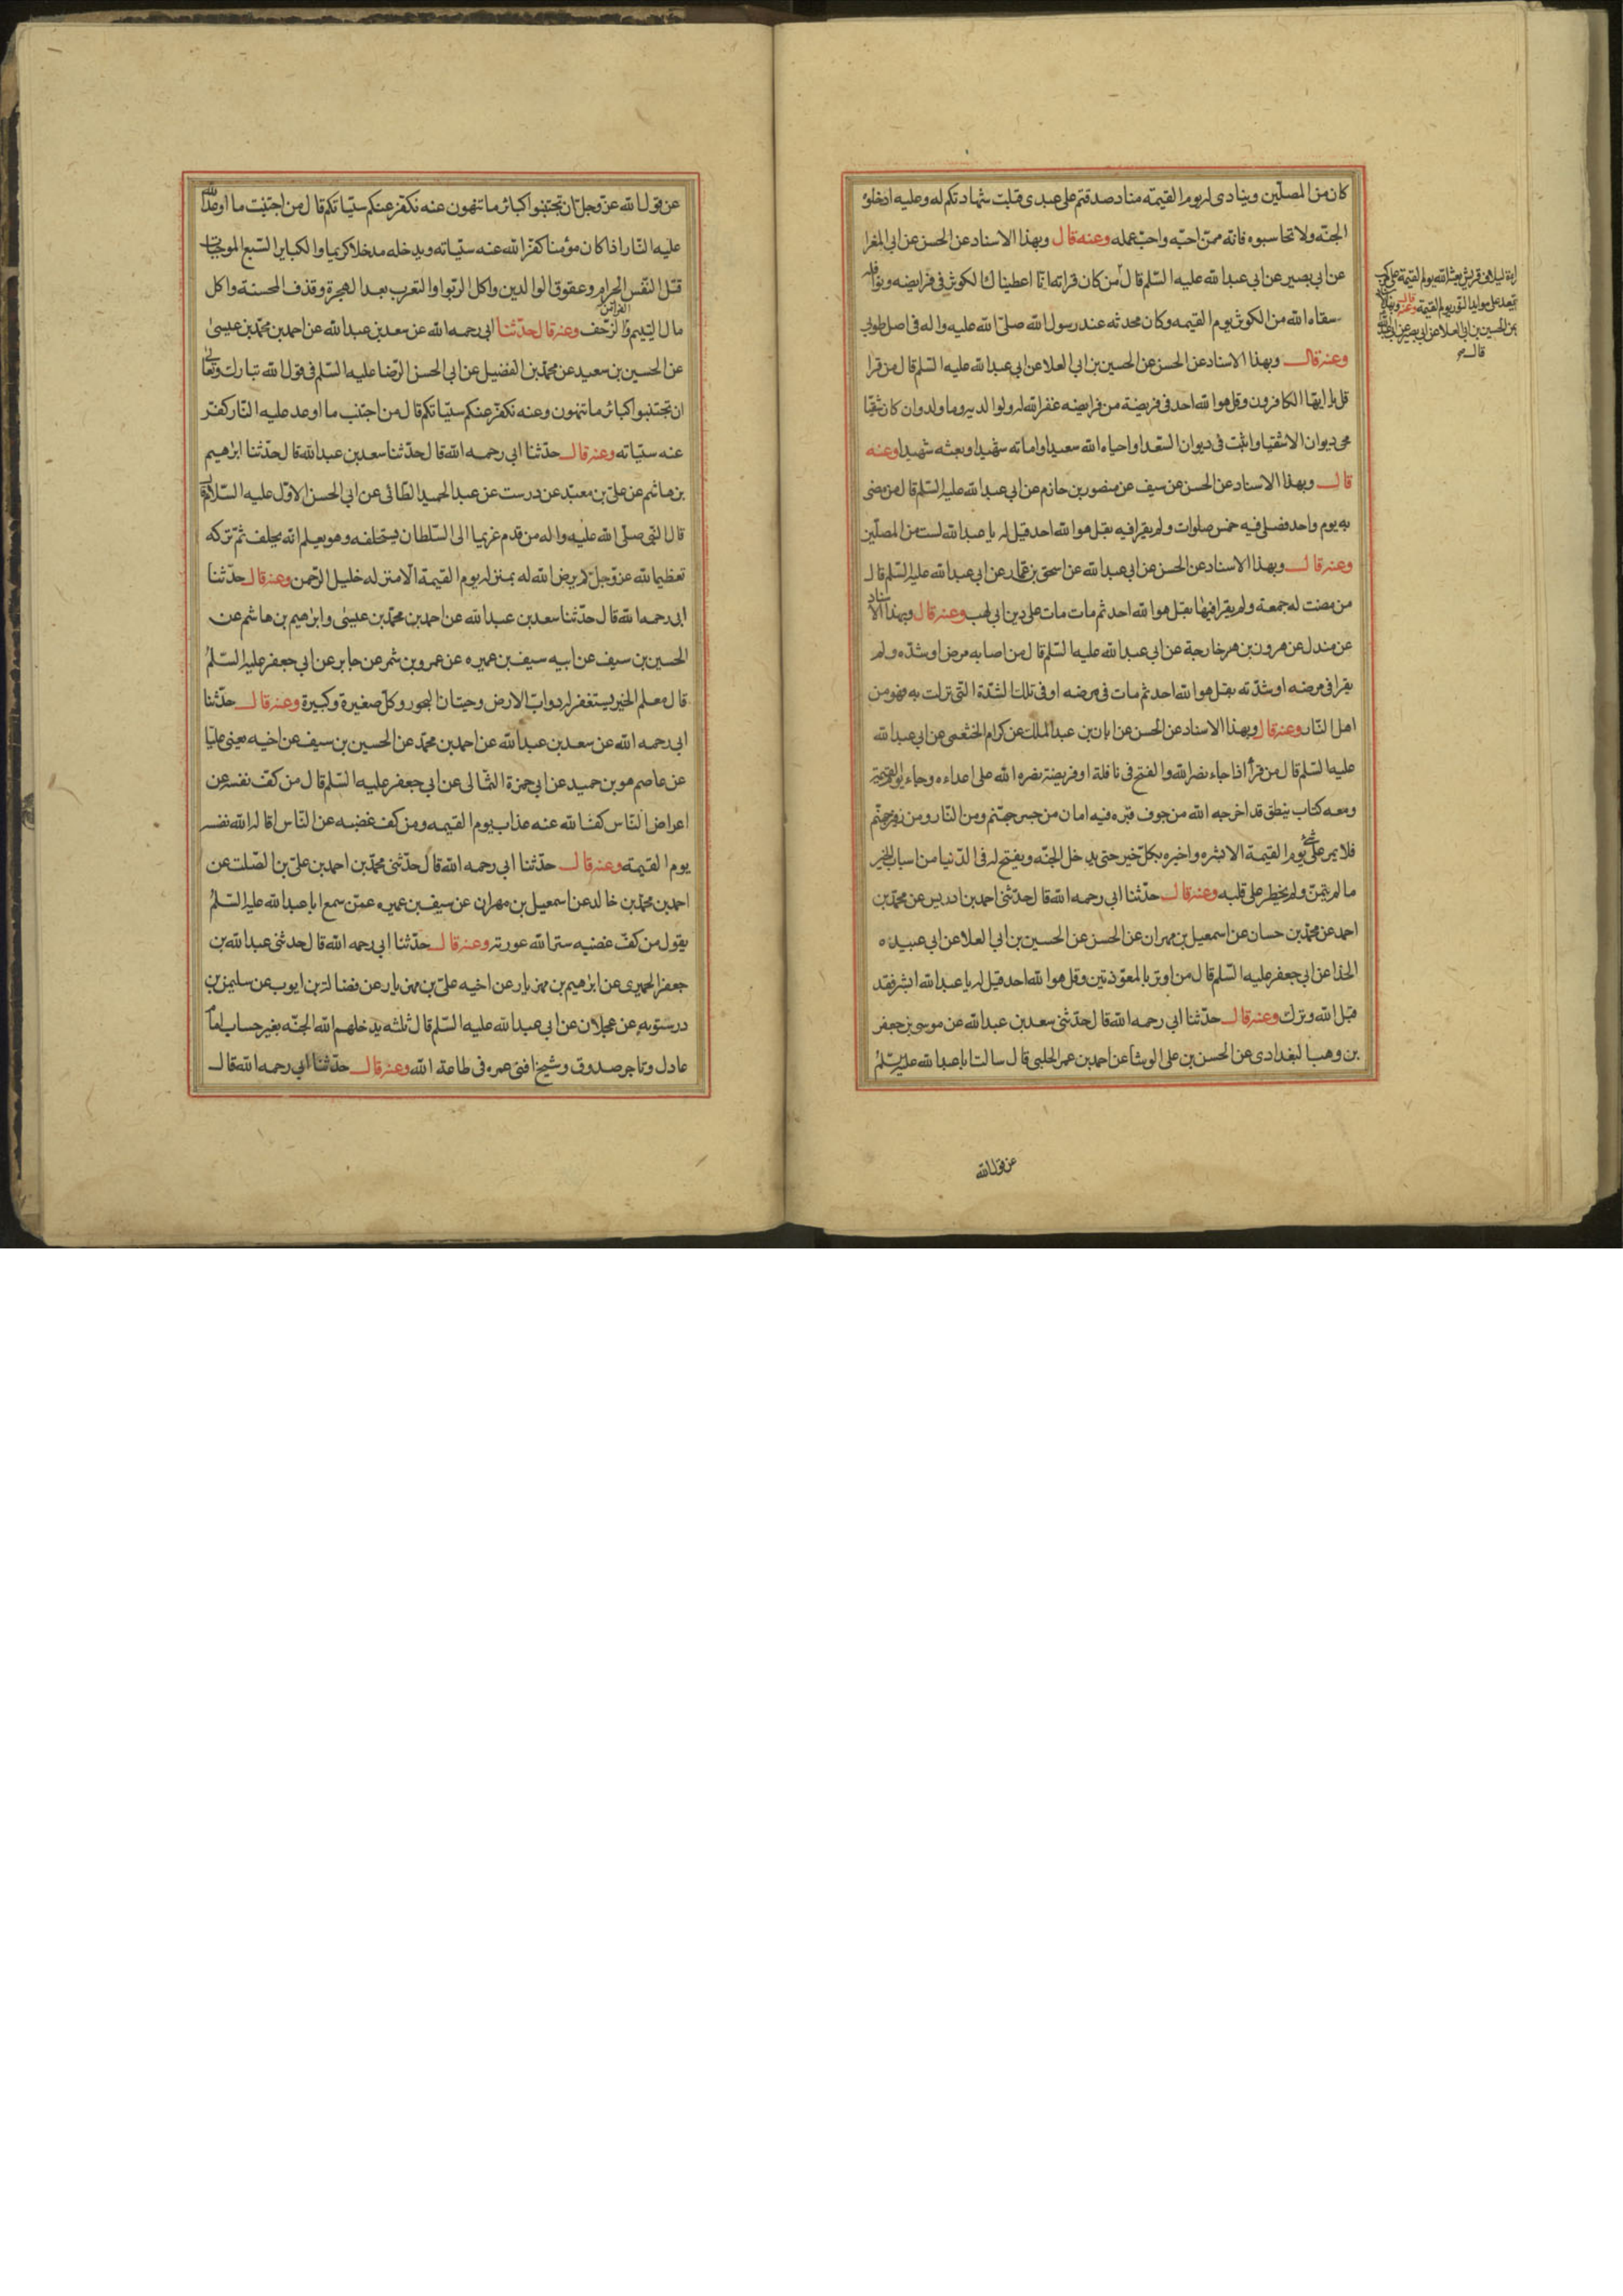 كان من المصلّين وينادى له يوم القيمه مناد صدقتم على عبدى قبلت شهادتكم له وعليه ادخلوه
الجنّه ولا تحاسبوه فانه ممّن احبّه واحبّ عمله وعنه قال وبهذا الاسناد عن الحسن عن ابى المغرا
عن ابي بصير عن ابى عبدا لله عليه السّلم قال من كان قراته انّا اعطيناك الكوثر فى فرايضه ونوافله
سقاه الله من الكوثر يوم القيمه وكان محدثه عند رسول الله صلىّ الله عليه واله فى اصل طوبي
وعنه قال وبهذا الاسناد عن الحسن عن الحسين بن ابى العلا عن ابى عبدا لله عليه السّلم قال من قرا
قل يا ايها الكافرون وقل هوا لله احد فى فريضة من فرايضه غفرا لله له ولوا لديه وما ولد وان كان شقيّا
محى ديوان الاشقيا واثبت فى ديوان السّعدا واحياه الله سعيدا واماته شهيدا وبعثه شهيدا وعنه
قال وبهذا الاسناد عن الحسن عن سيف عن منصور بن حازم عن ابى عبدا لله عليه السّلم قال من مضى
به يوم واحد فصلى فيه خمس صلوات ولم يقرا فيه بقل هوا لله احد قيل له يا عبدا لله لست من المصلّين
وعنه قال وبهذا الاسناد عن الحسن عن ابى عبدا لله عن اسحق بن عمّار عن ابى عبدا لله عليه السّلم قال
من مضت له جمعة ولم يقرا فيها بقل هوا لله احد ثم مات مات على دين ابى لهب وعنه قال وبهذا الاسناد
عن مندل عن هرون بن خارجة عن ابى عبدا لله عليه السّلم قال من اصابه مرض او شدّه ولم
يقرا فى مرضه او شدّته بقل هوا لله احد ثم مات فى مرضه او فى تلك الشدّة التى نزلت به فهو من
اهل النّار وعنه قال وبهذا الاسناد عن الحسن عن ابان بن عبد الملك عن كرام الخثعمى عن ابى عبدا لله
عليه السّلم قال من قرأ اذا جاء نصرا لله والفتح فى نافلة او فريضة نصره الله على اعداءه وجاء يوم القيمة
ومعه كتاب ينطق قد اخرجه الله من جوف قبره فيه امان من جسر جهنّم ومن النّار ومن زفير جهنّم
فلا يمر على شئ يوم القيمة الا بشره واخبره بكلّ خير حتى يدخل الجنّه ويفتح له فى الدّنيا من اسباب الخير
ما لم يتمنّ ولم يخطر على قلبه وعنه قال حدّثنا ابى رحمه الله قال حدّثنى احمد بن ادريس عن محمّد بن
احمد عن محمّد بن حسان عن اسمعيل بن مهران عن الحسن عن الحسين بن ابى العلا عن ابى عبيده
الحذا عن ابى جعفر عليه السّلم قال من اوتر بالمعوّذتين وقل هوا لله احد قيل له يا عبدا لله ابشر فقد
قبل الله وترك وعنه قال حدّثنا ابى رحمه الله قال حدّثنى سعد بن عبدا لله عن موسى بن جعفر
بن وهب البغدادى عن الحسن بن على الوشّا عن احمد بن عمر الحلبى قال سالت ابا عبدا لله عليه السّلم
لايلاف قريش بعثه الله يوم القيمة على
يقعد على موايد النّور يوم القيمة وعنه قال
عن الحسين بن ابى العلا عن ابى بصير عن
قال
عن قول الله
عن قول الله عزّ وجلّ ان تجتنبوا كبائر ما تنهون عنه نكفّر عنكم سيّاتكم قال من اجتنب ما اوعد الله
عليه النّار اذا كان مؤمنا كفّرا لله عنه سيّاته ويدخله مدخلا كريما والكباير السّبع الموجبات
قتل النّفس الحرام وعقوق الوالدين واكل الرّبوا والتعرب بعدا لهجرة وقذف المحسنة واكل
مال اليتيم والفرار من الزّحف وعنه قال حدّثنا ابى رحمه الله عن سعد بن عبدا لله عن احمد بن محمّد بن عيسى
عن الحسين بن سعيد عن محمّد بن الفضيل عن ابى الحسن الرّضا عليه السّلم فى قول الله تبارك وتعالى
ان تجتنبوا كبائر ما تنهون وعنه نكفّر عنكم سيّاتكم قال من اجتنب ما اوعد عليه النّار كفّر
عنه سيّاته وعنه قال حدّثنا ابى رحمه الله قال حدّثنا سعد بن عبدا لله قال حدّثنا ابرهيم
بن هاشم عن علىّ بن معبد عن درست عن عبدا لحميد الطّائى عن ابى الحسن الاوّل عليه السّلام
قال النّبى صلّى الله عليه واله من قدم غريما الى السّلطان يستحلفه وهو يعلم انّه يحلف ثمّ تركه
تعظيما لله عزّ وجلّ لم يرض الله له بمنزله يوم القيمة الّا منزله خليل الرّحمن وعنه قال حدّثنا
ابى رحمه الله قال حدّثنا سعد بن عبدا لله عن احمد بن محمّد بن عيسى وابرهيم بن هاشم عن
الحسين بن سيف عن ابيه سيف بن عميره عن عمرو بن شمر عن جابر عن ابي جعفر عليه السّلم
قال معلم الخير يستغفر له دوابّ الارض وحيتان البحور وكلّ صغيرة وكبيرة وعنه قال حدّثنا
ابى رحمه الله عن سعد بن عبدا لله عن احمد بن محمّد عن الحسين بن سيف عن اخيه يعنى عليّا
عن عاصم هو بن حميد عن ابى حمزة الثّمالى عن ابى جعفر عليه السّلم قال من كفّ نفسه عن
اعراض النّاس كفّا لله عنه عذاب يوم القيمه ومن كف غضبه عن النّاس اقاله الله نفسه
يوم القيمة وعنه قال حدّثنا ابى رحمه الله قال حدّثنى محمّد بن احمد بن علىّ بن الصّلت عن
احمد بن محمّد بن خالد عن اسمعيل بن مهران عن سيف بن عميره عمّن سمع ابا عبدا لله عليه السّلم
يقول من كفّ غضبه سترا لله عورته وعنه قال حدّثنا ابى رحمه الله قال حدثنى عبدا لله بن
جعفر الحميرى عن ابرهيم بن مهزيار عن اخيه علىّ بن مهزيار عن فضالة بن ايوب عن سليمن بن
درستويه عن عجلان عن ابى عبدا لله عليه السّلم قال ثلثه يدخلهم الله الجنّه بغير حساب امام
عادل وتاجر صدوق وشيخ افنى عمره فى طاعة الله وعنه قال حدّثنا ابى رحمه الله قال